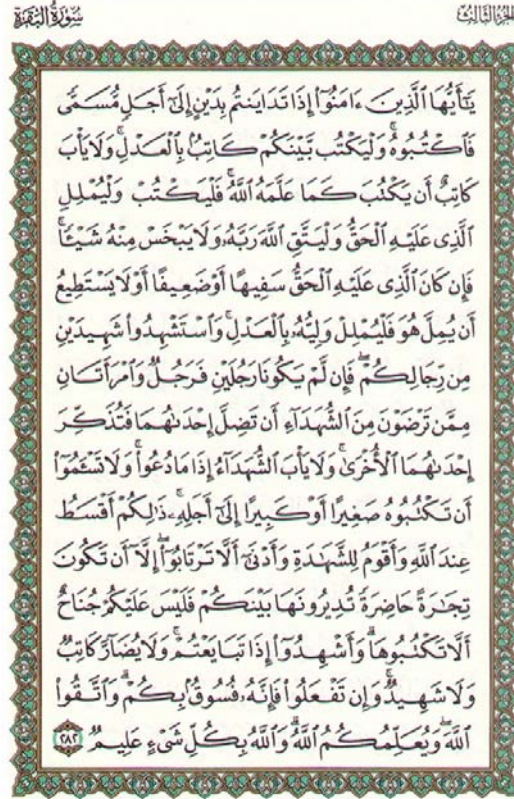 الجزء الثالث
سورة البقرة
يَٰٓأَيُّهَا ٱلَّذِينَ ءَامَنُوٓا۟ إِذَا تَدَايَنتُم بِدَيْنٍ إِلَىٰٓ أَجَلٍ مُّسَمًّى
فَٱكْتُبُوهُ ۚ وَلْيَكْتُب بَّيْنَكُمْ كَاتِبٌۢ بِٱلْعَدْلِ ۚ وَلَا يَأْبَ
كَاتِبٌ أَن يَكْتُبَ كَمَا عَلَّمَهُ ٱللَّهُ ۚ فَلْيَكْتُبْ وَلْيُمْلِلِ
ٱلَّذِى عَلَيْهِ ٱلْحَقُّ وَلْيَتَّقِ ٱللَّهَ رَبَّهُۥ وَلَا يَبْخَسْ مِنْهُ شَيْـًٔا ۚ
فَإِن كَانَ ٱلَّذِى عَلَيْهِ ٱلْحَقُّ سَفِيهًا أَوْ ضَعِيفًا أَوْ لَا يَسْتَطِيعُ
أَن يُمِلَّ هُوَ فَلْيُمْلِلْ وَلِيُّهُۥ بِٱلْعَدْلِ ۚ وَٱسْتَشْهِدُوا۟ شَهِيدَيْنِ
مِن رِّجَالِكُمْ ۖ فَإِن لَّمْ يَكُونَا رَجُلَيْنِ فَرَجُلٌ وَٱمْرَأَتَانِ
مِمَّن تَرْضَوْنَ مِنَ ٱلشُّهَدَآءِ أَن تَضِلَّ إِحْدَىٰهُمَا فَتُذَكِّرَ
إِحْدَىٰهُمَا ٱلْأُخْرَىٰ ۚ وَلَا يَأْبَ ٱلشُّهَدَآءُ إِذَا مَا دُعُوا۟ ۚ وَلَا تَسْـَٔمُوٓا۟
أَن تَكْتُبُوهُ صَغِيرًا أَوْ كَبِيرًا إِلَىٰٓ أَجَلِهِۦ ۚ ذَٰلِكُمْ أَقْسَطُ
عِندَ ٱللَّهِ وَأَقْوَمُ لِلشَّهَٰدَةِ وَأَدْنَىٰٓ أَلَّا تَرْتَابُوٓا۟ ۖ إِلَّآ أَن تَكُونَ
تِجَٰرَةً حَاضِرَةً تُدِيرُونَهَا بَيْنَكُمْ فَلَيْسَ عَلَيْكُمْ جُنَاحٌ
أَلَّا تَكْتُبُوهَا ۗ وَأَشْهِدُوٓا۟ إِذَا تَبَايَعْتُمْ ۚ وَلَا يُضَآرَّ كَاتِبٌ
وَلَا شَهِيدٌ ۚ وَإِن تَفْعَلُوا۟ فَإِنَّهُۥ فُسُوقٌۢ بِكُمْ ۗ وَٱتَّقُوا۟
ٱللَّهَ ۖ وَيُعَلِّمُكُمُ ٱللَّهُ ۗ وَٱللَّهُ بِكُلِّ شَىْءٍ عَلِيمٌ ٢٨٢